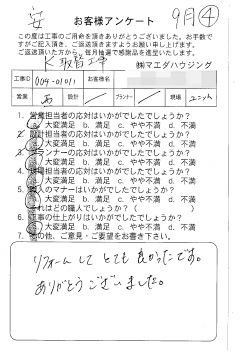 安
お客様アンケート
9月④
この度は工事のご用命を頂きありがとうございました。お手数で
すがご記入頂き、ご返送頂きますようお願い申し上げます。
ご返送頂いた方から、毎月抽選で感謝品を進呈いたします。
㈱マエダハウジング
K取替工事
工事ID 004-01011 お客様名
営業 あ 設計 / プランナー / 現場 ユニット
1. 営業担当者の応対はいかがでしたでしょうか?
a. 大変満足 b. 満足 c. やや不満 d. 不満
2. 設計担当者の応対はいかがでしたでしょうか?
a. 大変満足 b. 満足 c. やや不満 d. 不満
3. プランナーの応対はいかがでしたでしょうか?
a. 大変満足 b. 満足 c. やや不満 d. 不満
4. 現場担当者の応対はいかがでしたでしょうか?
a. 大変満足 b. 満足 c. やや不満 d. 不満
5. 職人のマナーはいかがでしたでしょうか?
a. 大変満足 b. 満足 c. やや不満 d. 不満
それはどの職人でしょうか? ( )
6. 工事の仕上がりはいかがでしたでしょうか?
a. 大変満足 b. 満足 c. やや不満 d. 不満
7. その他、ご意見・ご要望をお書き下さい。
リフォームして とても良かったです。
ありがとうございました。